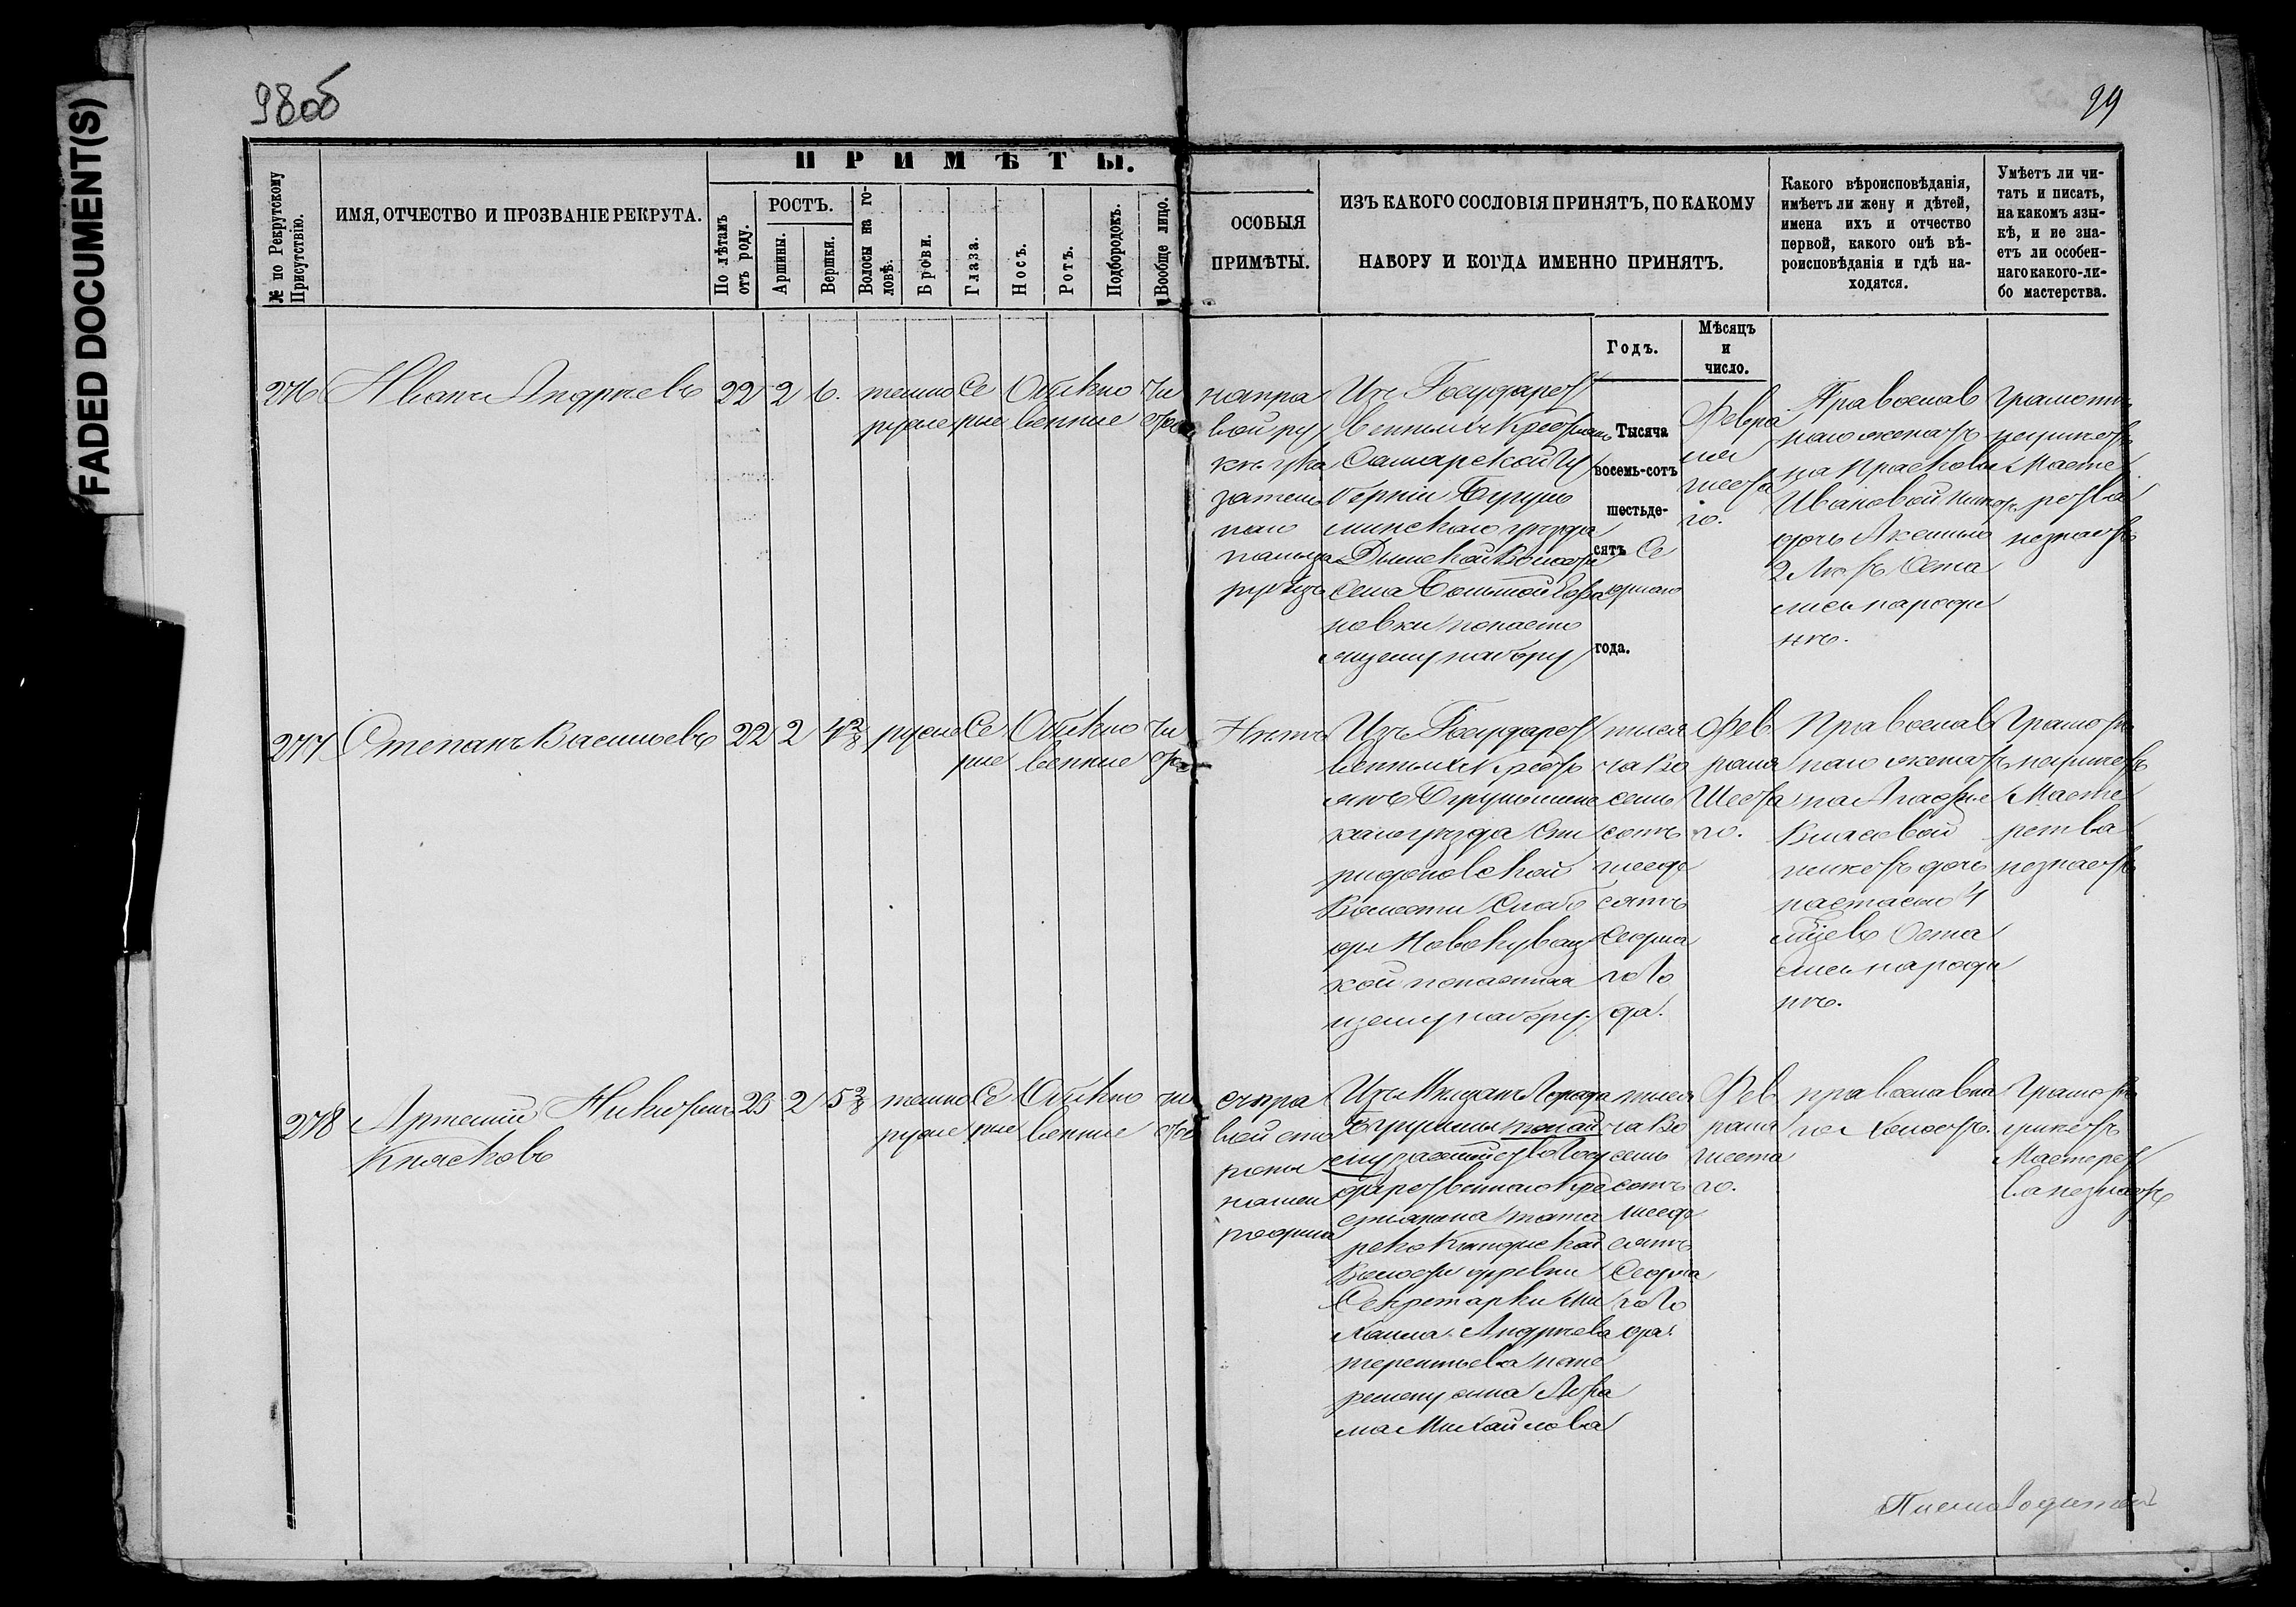 FADED DOCUMENT(S)
98об
99
ПРИМѢТЫ.
№ по Рекрутскому
Присутствію.
ИМЯ, ОТЧЕСТВО И ПРОЗВАНІЕ РЕКРУТА.
По лѣтамъ
отъ роду.
РОСТЪ.
Аршины.
Вершки.
Волосы на го-
ловѣ.
Брови.
Глаза.
Носъ.
Ротъ.
Подбородокъ.
Вообще лицо.
ОСОБЫЯ
ПРИМѢТЫ.
ИЗЪ КАКОГО СОСЛОВІЯ ПРИНЯТЪ, ПО КАКОМУ
НАБОРУ И КОГДА ИМЕННО ПРИНЯТЪ.
Годъ.
Мѣсяцъ
и
число.
Какого вѣроисповѣданія,
имѣетъ ли жену и дѣтей,
имена ихъ и отчество
первой, какого онѣ вѣ-
роисповѣданія и гдѣ на-
ходятся.
Умѣетъ ли чи-
тать и писать,
на какомъ язы-
кѣ, и не зна-
етъ ли особен-
наго какого-ли-
бо мастерства.
276
Иванъ Андреевъ
22
2
6.
темно
русые
Се
рые
Обыкно
венные
чи
стое
на пра
вой ру
кѣ ука
затель
наго
пальца
Изъ Государст
венныхъ Крестьянъ
Самарской Гу
берніи Бугуль
минскаго уѣзда
Дымской Волости
Села Большой
новки по насто
ящему набору
Тысяча
восемь-сотъ
шестьде-
сятъ Се
дьмаго
года.
Февра
ля
шеста
го.
Православ
наго женатъ
на Прасковьи
Ивановой имѣетъ
дочь Аксинью
2 лѣтъ Оста
лись на роди
нѣ.
Грамотѣ
неумѣетъ
Масте
рства
незнаетъ
277
Степанъ Васильевъ
22
2
4 2/8
русые
Се
рые
Обыкно
венные
чи
стое
Нѣтъ
Изъ Государст
венныхъ Кресть
янъ Бугульмин
скаго уѣзда Спи
ридоновской
Волости Слобо
ды Новокувац
кой по настоя
щему набору.
тыся
ча во
семь
сотъ
шесде
сятъ
Седьма
го Го
да.
Фев
раля
Шеста
го.
Православ
наго женатъ
на Агафье
Власовой
имѣетъ дочь
настасью 4
мѣсяцевъ Оста
лись на роди
нѣ.
Грамотѣ
неумѣетъ
Масте
рства
незнаетъ
278
Артемій Никифоровъ
Князьковъ
23
2
5 2/8
темно
русые
Се
рые
Обыкно
венные
чи
стое
съ пра
вой сто
роны
на шеи
родина
Изъ Мѣщанъ Города
Бугульмы
дарственнаго Кре
стьянина
Волости дѣревни
Секретарки Ми
хаила Андреева
терентьева
сына
Михайлова
тыся
ча во
семь
сотъ
шесде
сятъ
Седьма
го Го
да.
Фев
раля
шеста
го.
православна
го Холостъ.
Грамотѣ
умѣетъ
Мастерст
ва незнаетъ